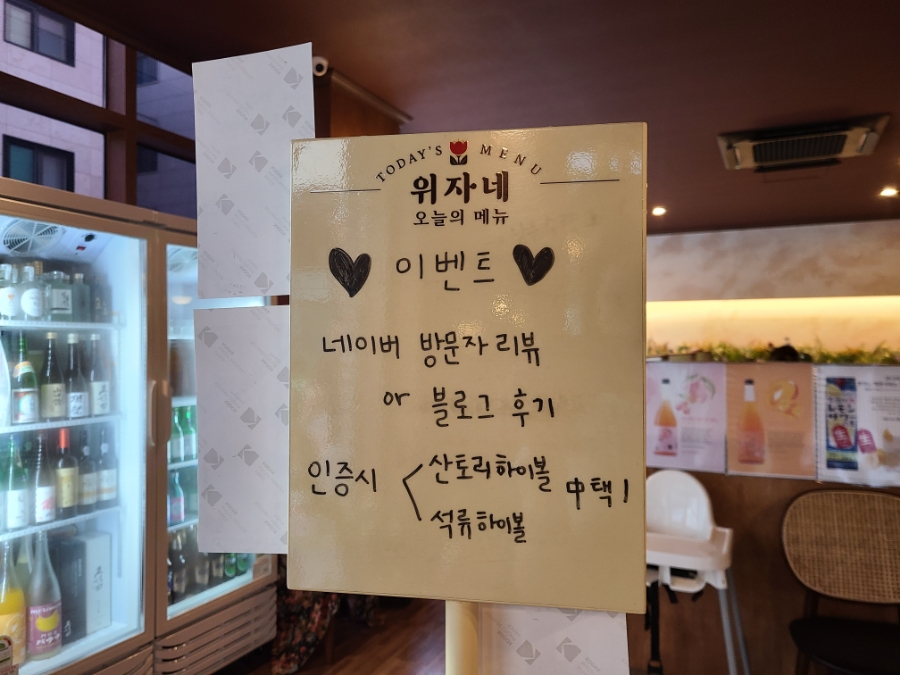 TODAY'S MENU
위자네
오늘의 메뉴
이벤트
네이버 방문자 리뷰
or 블로그 후기
인증시 산토리하이볼
석류하이볼 中택1